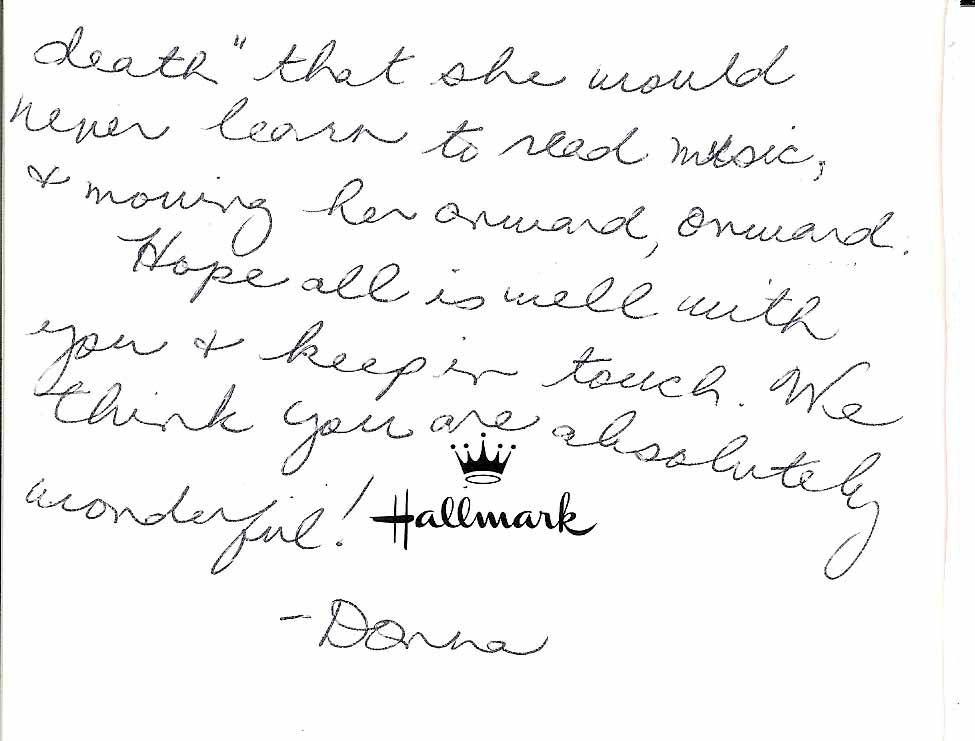 death" that she would
never learn to read music,
& moving her onward, onward.
Hope all is well with
you & keep in touch. We
think you are absolutely
wonderful!
Hallmark
-Donna